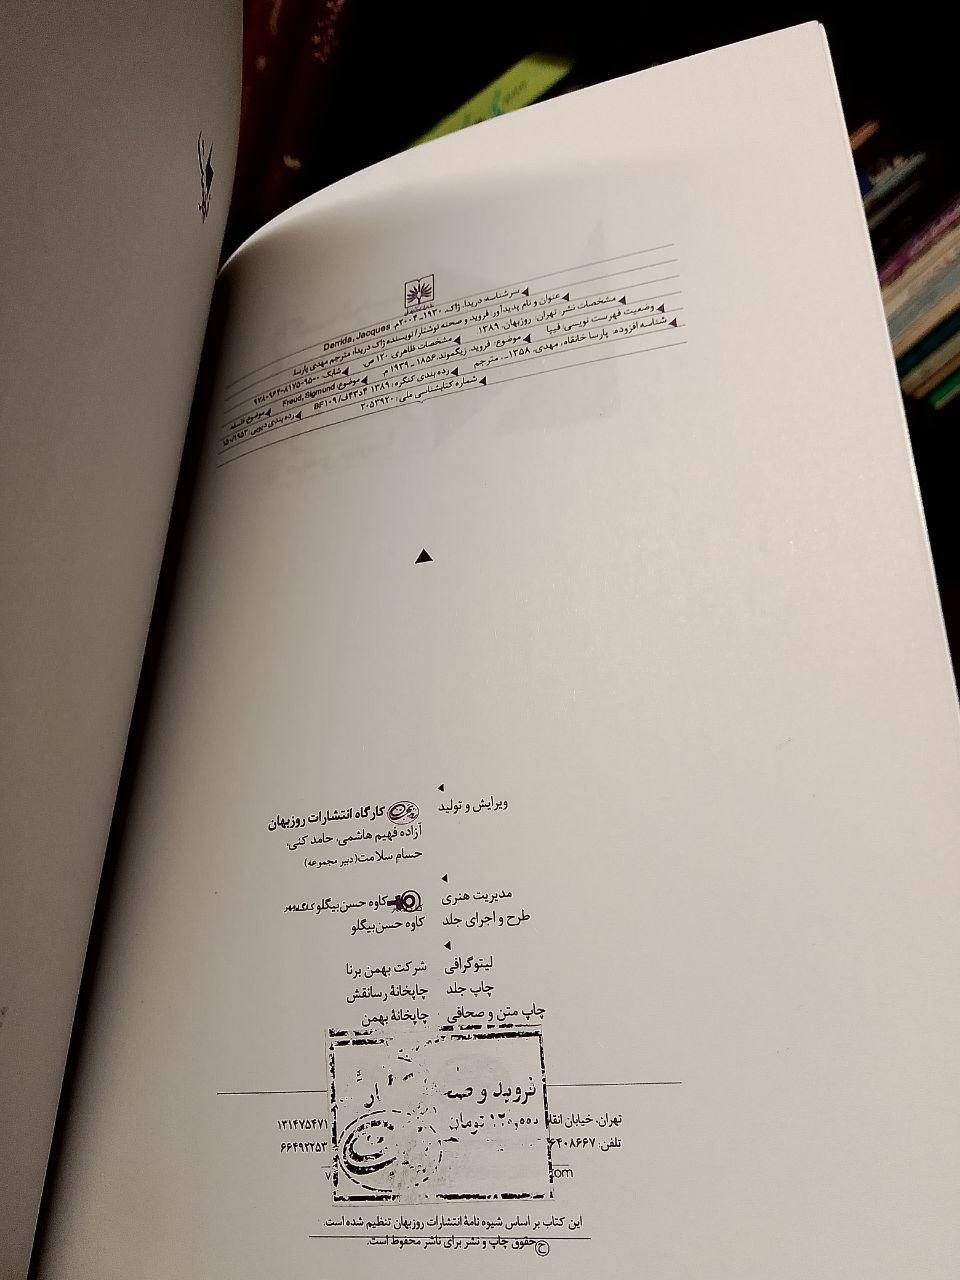 ◀سرشناسه: دریدا، ژاک، ۱۹۳۰ـ۲۰۰۴م. Derrida, Jacques
◀عنوان و نام پدیدآور: فروید و صحنه نوشتار/ نویسنده ژاک دریدا؛ مترجم مهدی پارسا
◀مشخصات نشر: تهران: روزبهان، ۱۳۸۹. ◀مشخصات ظاهری: ۱۲۰ ص ◀شابک: ۹۵۰۰-۸۱۷۵-۹۶۴-۹۷۸
◀وضعیت فهرست نویسی: فیپا ◀موضوع: فروید، زیگموند، ۱۸۵۶ـ۱۹۳۹ م ◀موضوع: Freud, Sigmund ◀موضوع: فلسفه
◀شناسه افزوده: پارسا خانقاه، مهدی، ۱۳۵۸ـ، مترجم ◀رده بندی کنگره: ۱۳۸۹ ۴د۴۳ف/BF۱۰۹ ◀رده بندی دیویی: ۱۵۰/۱۹۵۲
◀شماره کتابشناسی ملی: ۲۰۵۳۹۲۰
ویرایش و تولید کارگاه انتشارات روزبهان
آزاده فهیم هاشمی، حامد کنی،
حسام سلامت(دبیر مجموعه)
مدیریت هنری کاوه حسن‌بیگلو
طرح و اجرای جلد کاوه حسن‌بیگلو
لیتوگرافی شرکت بهمن برنا
چاپ جلد چاپخانهٔ رسانقش
چاپ متن و صحافی چاپخانهٔ بهمن
فروید و صح ار
تهران، خیابان انقلا ۱۲۰,۰۰۰ تومان ۱۳۱۴۷۵۴۷۱
تلفن: ۶۶۴۰۸۶۶۷ ۶۶۴۹۲۲۵۳
.com
این کتاب بر اساس شیوه نامهٔ انتشارات روزبهان تنظیم شده است.
ح حقوق چاپ و نشر برای ناشر محفوظ است.